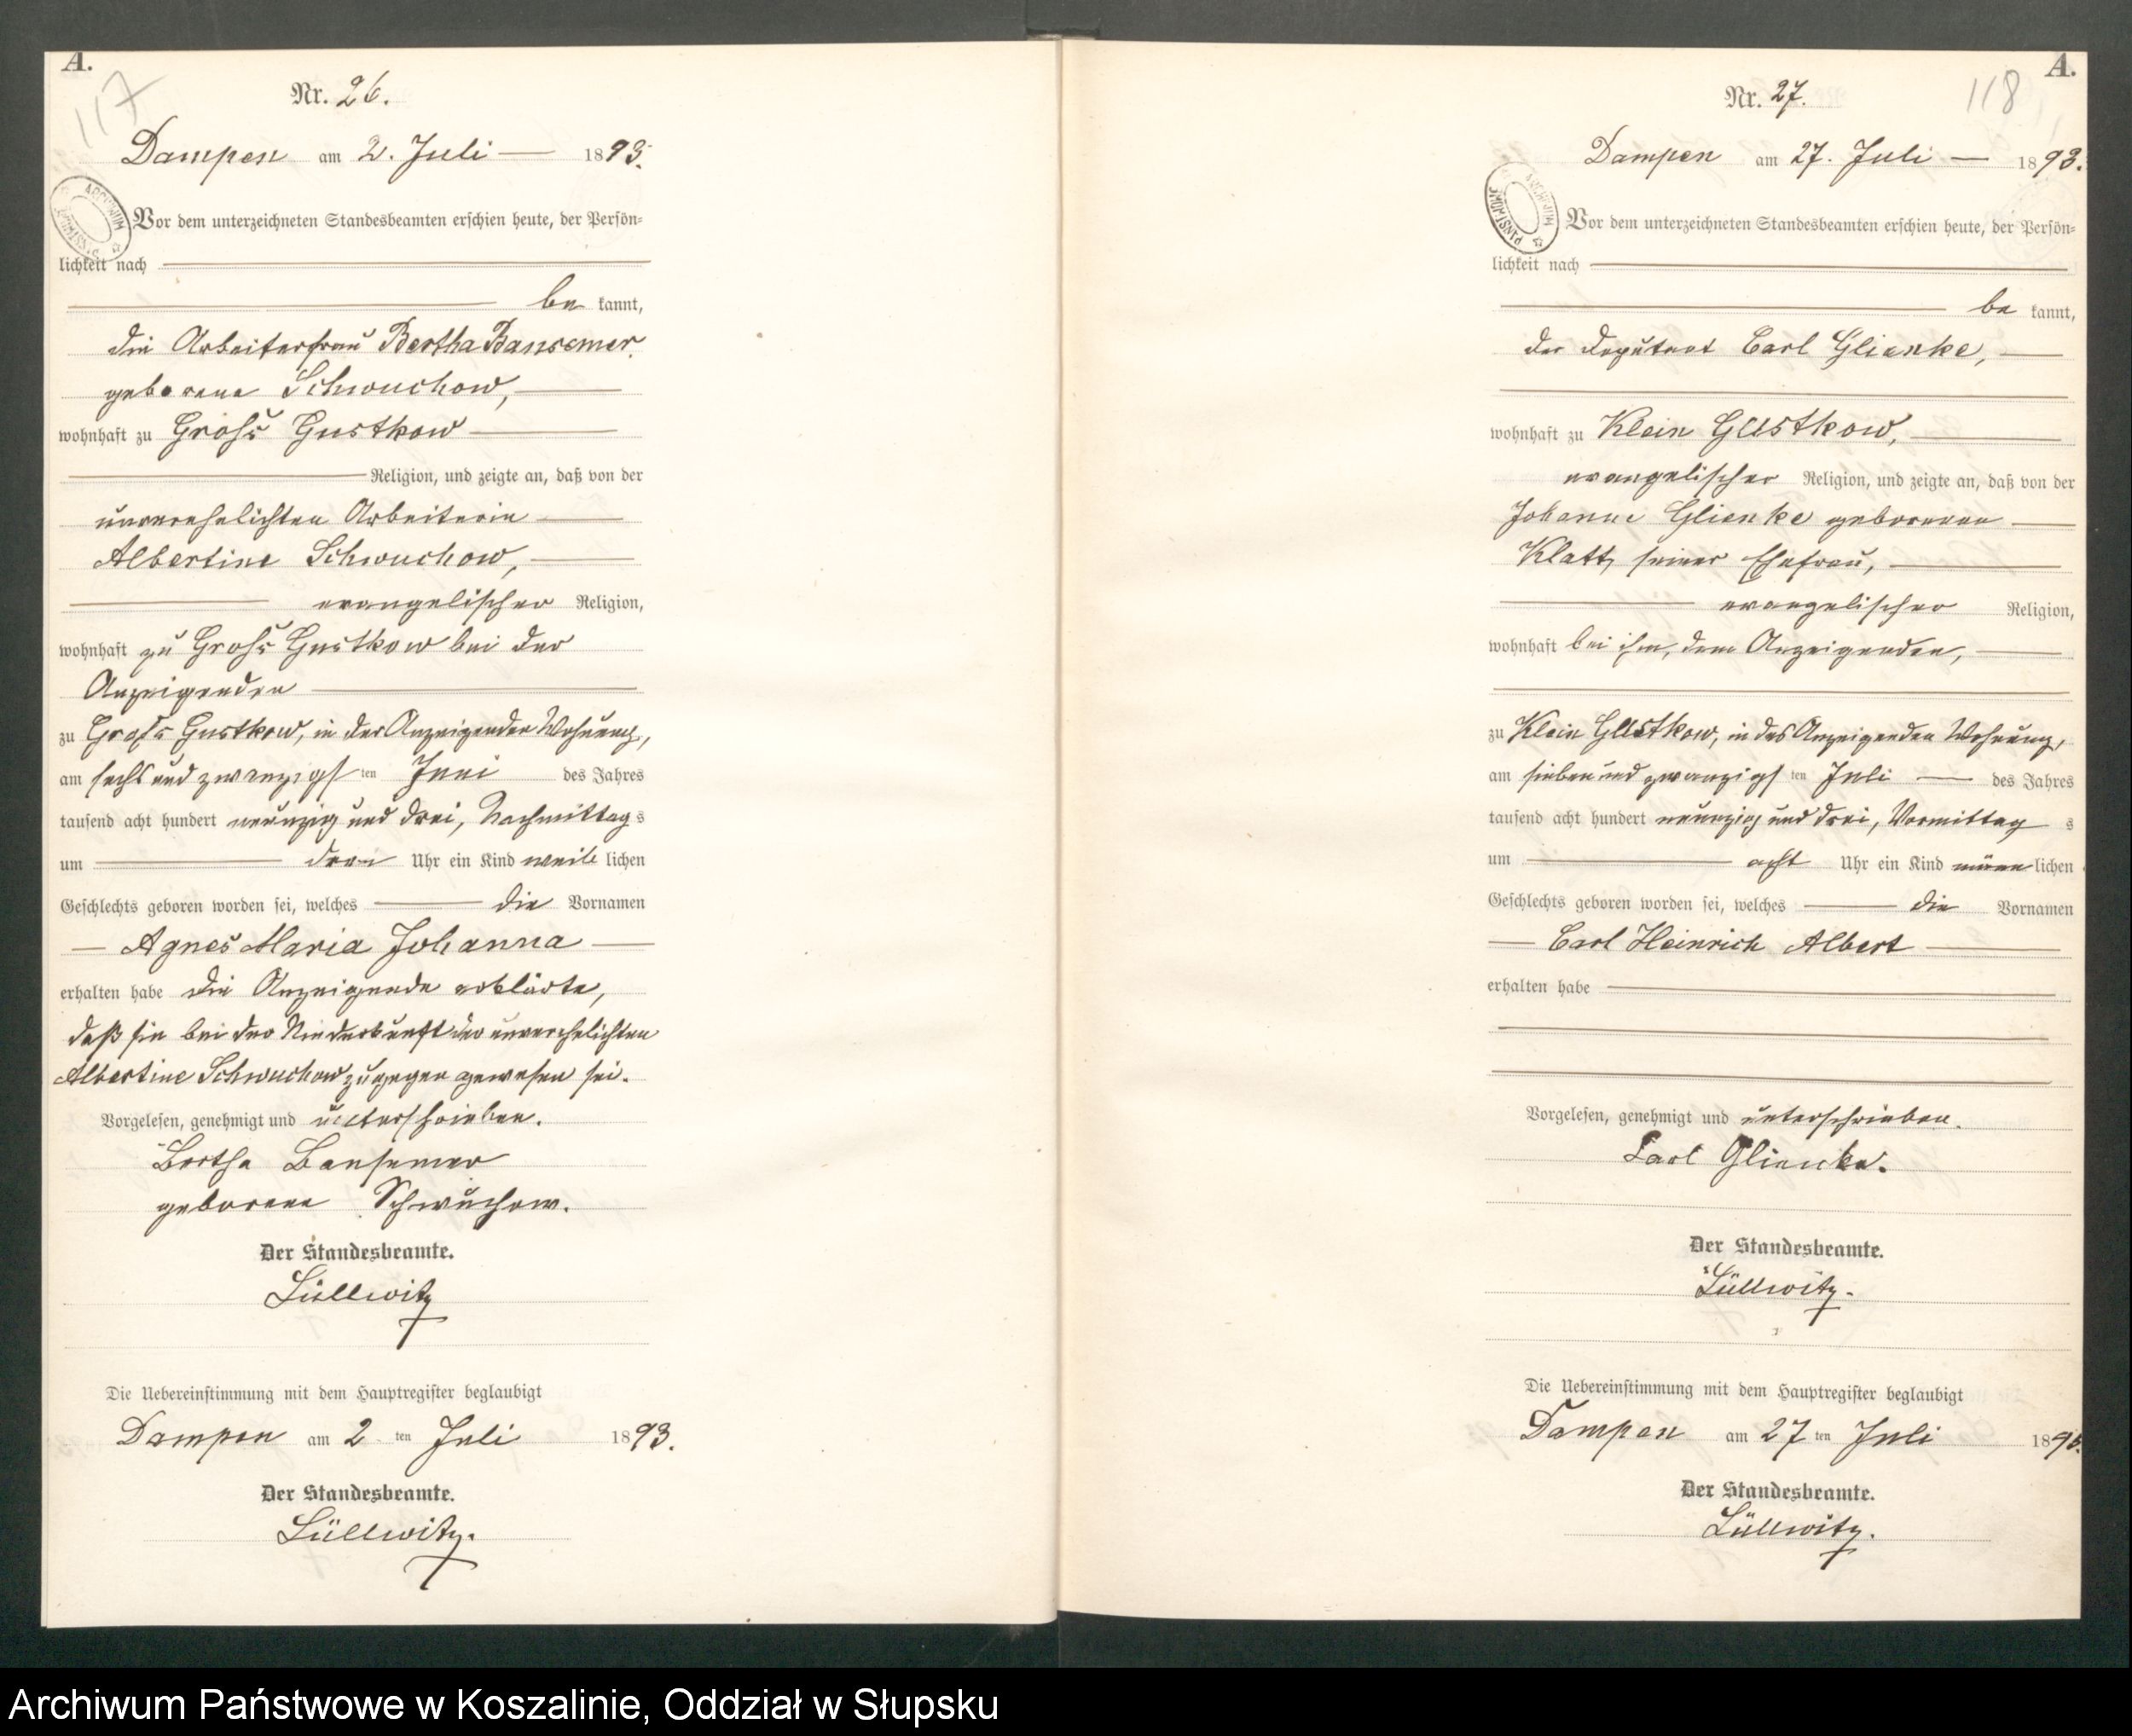 A.
117
Nr. 26.
Dampen am 2. Juli 1893.
Vor dem unterzeichneten Standesbeamten erschien heute, der Persön-
lichkeit nach
be kannt,
die Arbeiterfrau Bertha Bansemer,
geborene Schwuchow,
wohnhaft zu Groß Gustkow
Religion, und zeigte an, daß von der
unverehelichten Arbeiterin
Albertine Schwuchow,
evangelischer Religion,
wohnhaft zu Groß Gustkow bei der
Anzeigenden
zu Groß Gustkow, in der Anzeigenden Wohnung,
am sechs und zwanzigs ten Juni des Jahres
tausend acht hundert neunzig und drei, Nachmittag s
um drei Uhr ein Kind weib lichen
Geschlechts geboren worden sei, welches die Vornamen
Agnes Maria Johanna
erhalten habe die Anzeigende erklärte,
daß sie bei der Niederkunft der unverehelichten
Albertine Schwuchow zugegen gewesen sei.
Vorgelesen, genehmigt und unterschrieben.
Bertha Bansemer
geborene Schwuchow.
Der Standesbeamte.
Lüllwitz
Die Uebereinstimmung mit dem Hauptregister beglaubigt
Dampen am 2 ten Juli 1893.
Der Standesbeamte.
Lüllwitz.
A.
118
Nr. 27.
Dampen am 27. Juli 1893.
Vor dem unterzeichneten Standesbeamten erschien heute, der Persön-
lichkeit nach
be kannt,
der Deputant Carl Glienke,
wohnhaft zu Klein Gustkow,
evangelischer Religion, und zeigte an, daß von der
Johanne Glienke geborenen
Klatt, seiner Ehefrau,
evangelischer Religion,
wohnhaft bei ihm, dem Anzeigenden,
zu Klein Gustkow, in des Anzeigenden Wohnung,
am sieben und zwanzigs ten Juli des Jahres
tausend acht hundert neunzig und drei, Vormittag s
um acht Uhr ein Kind männ lichen
Geschlechts geboren worden sei, welches die Vornamen
Carl Heinrich Albert
erhalten habe
Vorgelesen, genehmigt und unterschrieben.
Carl Glienke.
Der Standesbeamte.
Lüllwitz.
Die Uebereinstimmung mit dem Hauptregister beglaubigt
Dampen am 27 ten Juli 1893.
Der Standesbeamte.
Lüllwitz.
Archiwum Państwowe w Koszalinie, Oddział w Słupsku